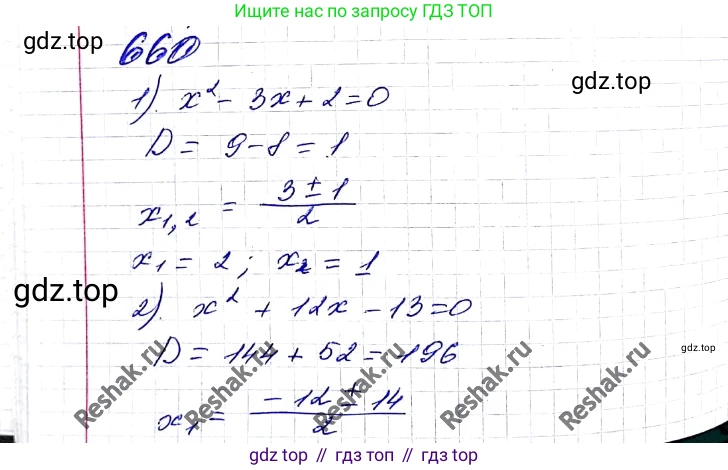 Ищите нас по запросу ГДЗ ТОП
gdz.top
660
gdz.top
1). x² - 3x + 2 = 0
D = 9 - 8 = 1
x₁,₂ = (3 ± 1)/2
x₁ = 2; x₂ = 1
gdz.top
2). x² + 12x - 13 = 0
D = 144 + 52 = 196
gdz.top
x₁ = (-12 ± 14)/2
Reshak.ru
Reshak.ru
Reshak.ru
Reshak.ru
gdz top // гдз топ // gdz.top